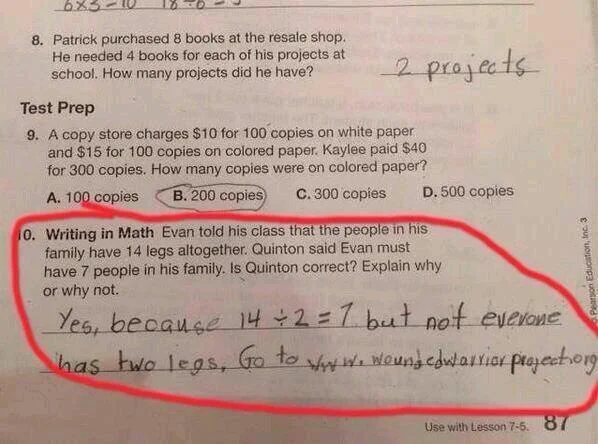 6x3=10 18÷6=3
8. Patrick purchased 8 books at the resale shop.
He needed 4 books for each of his projects at
school. How many projects did he have?
2 projects
Test Prep
9. A copy store charges $10 for 100 copies on white paper
and $15 for 100 copies on colored paper. Kaylee paid $40
for 300 copies. How many copies were on colored paper?
A. 100 copies B. 200 copies C. 300 copies D. 500 copies
10. Writing in Math Evan told his class that the people in his
family have 14 legs altogether. Quinton said Evan must
have 7 people in his family. Is Quinton correct? Explain why
or why not.
Yes, because 14 ÷ 2 = 7 but not everone
has two legs, Go to www.woundedwarriorproject.org
Use with Lesson 7-5. 87
Pearson Education, Inc. 3